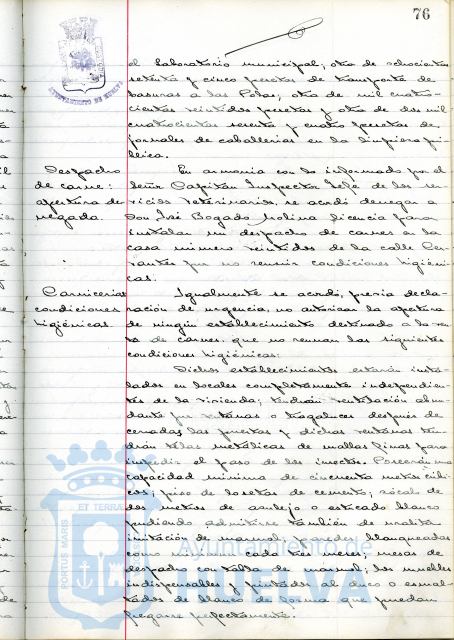 76
el Laboratorio municipal; otra de ochocientas
setenta y cinco pesetas de transporte de
basuras a las Potas; otra de mil cuatro-
cientas veintidos pesetas y otra de dos mil
cuatrocientas sesenta y cuatro pesetas de
jornales de caballerias en la limpieza pú-
blica.
Despacho
de carne:
apertura de-
negada.
En armonia con lo informado por el
Señor Capitán Inspector Jefe de los ser-
vicios Veterinarios, se acordó denegar a
Don José Bogado Molina licencia para
instalar un despacho de carnes en la
casa número veintidos de la calle Cer-
vantes por no reunir condiciones higiéni-
cas.
Carnicerias
condiciones
higiénicas.
Igualmente se acordó, previa decla-
ración de urgencia, no autorizar la apertura
de ningún establecimiento destinado a la ven-
ta de carnes, que no reunan las siguientes
condiciones higiénicas:
Dichos establecimientos estarán insta-
lados en locales completamente independien-
tes de la vivienda; tendrán ventilación abun-
dante por ventanas o tragaluces después de
cerradas las puertas y dichas ventanas ten-
drán telas metálicas de mallas finas para
impedir el paso de los insectos. Poseerán una
capacidad minima de cincuenta metros cúbi-
cos; piso de losetas de cemento; zócalo de
dos metros de azulejo o estucado blanco
pudiendo admitirse también de uralita
imitación de marmol; paredes blanqueadas
como cada tres meses; mesas de
despacho con tabla de marmol; los muebles
indispensables y pintados al duco o esmal-
tados de blanco de forma que puedan
fregarse perfectamente.
Ayuntamiento de
HUELVA
PORTUS MARIS ET TERRAE